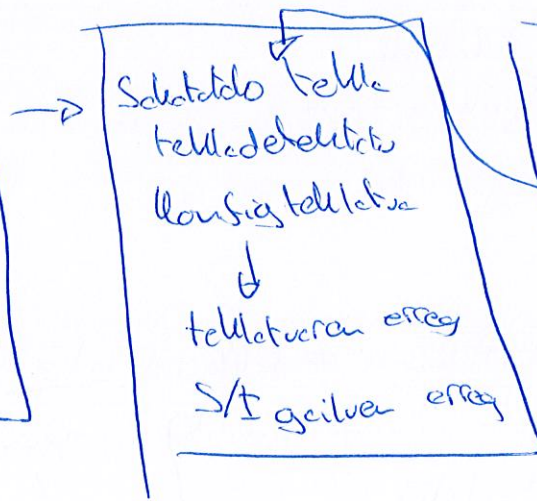 Sakatutako tekla
tekla detektatu
Konfig teklatua
teklatuaren erreg
S/I gailuen erreg